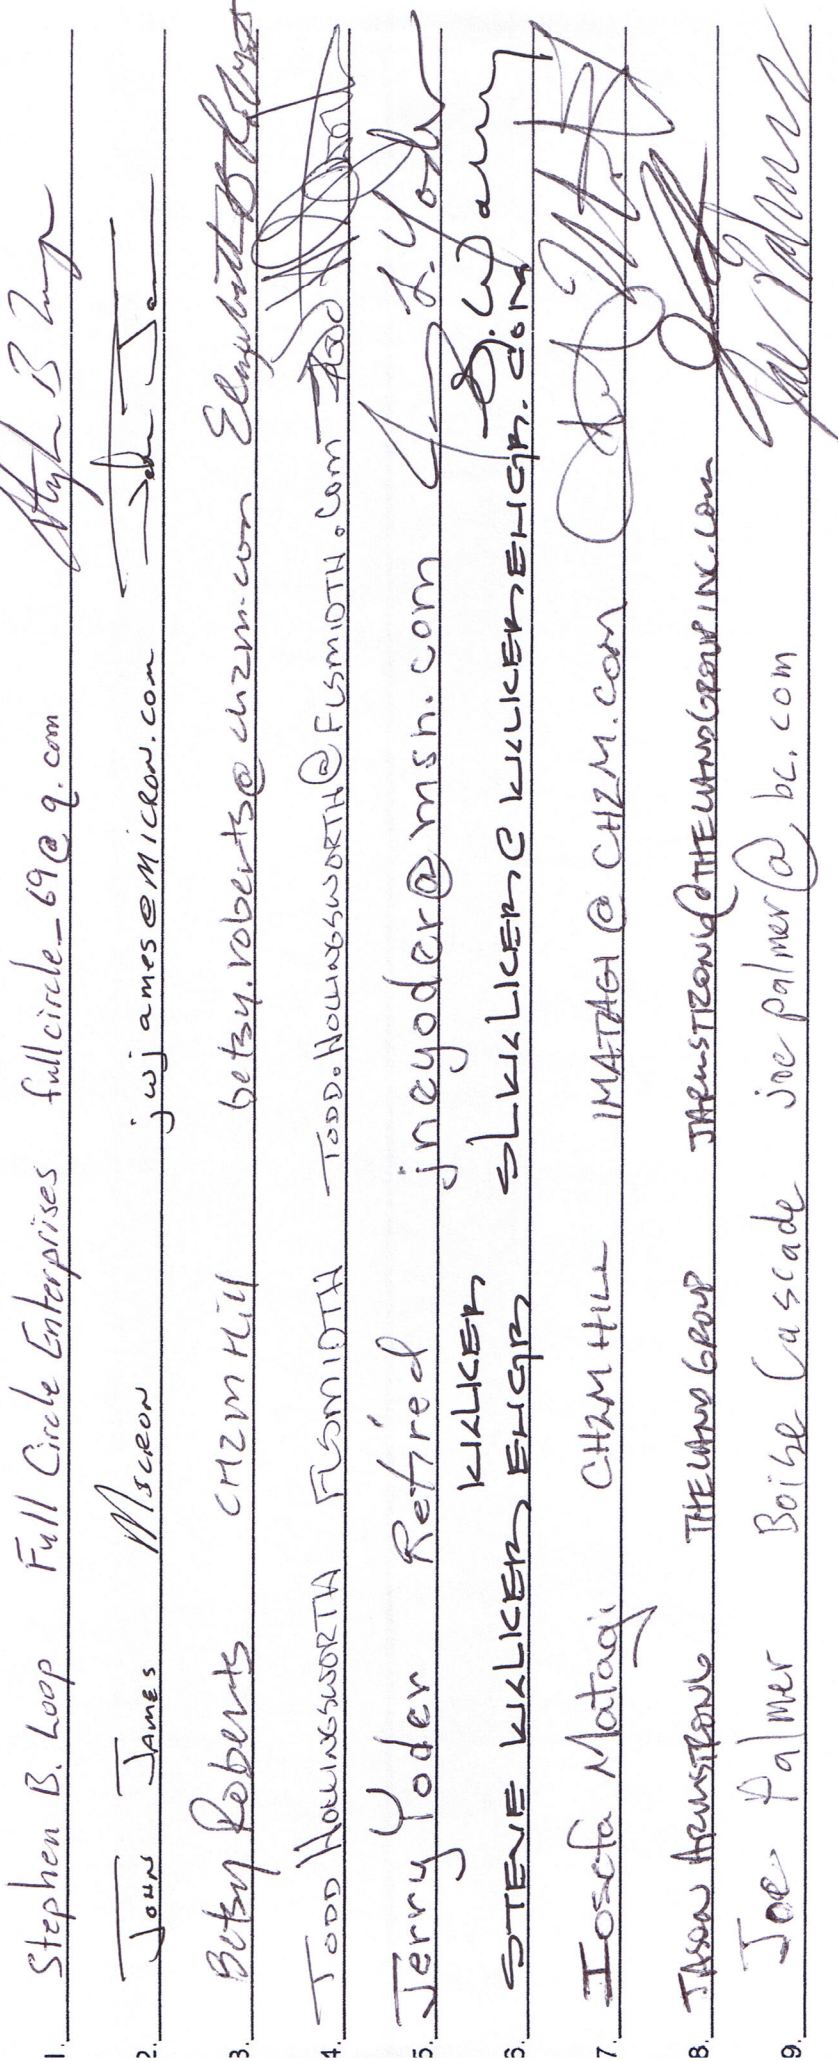 1. Stephen B. Loop Full Circle Enterprises fullcircle_69@q.com Stephen B Loop
2. JOHN JAMES MICRON jwjames@micron.com John Jam
3. Betsy Roberts CH2M Hill betsy.roberts@ch2m.com Elizabeth B Roberts
4. TODD HOLLINGSWORTH FLSMIDTH TODD.HOLLINGSWORTH@FLSMIDTH.com Todd
5. Jerry Yoder Retired jneyoder@msn.com J. L. Yoder
KIKLICER
6. STEVE KIKLICER ENGR SLKIKLICER@KIKLICERENGR.COM
7. Iosefa Matagi CH2M HILL IMATAGI@CH2M.COM
8. JASON ARMSTRONG THE LAND GROUP JARMSTRONG@THELANDGROUPINC.com
9. Joe Palmer Boise Cascade joepalmer@bc.com Joe Palmer